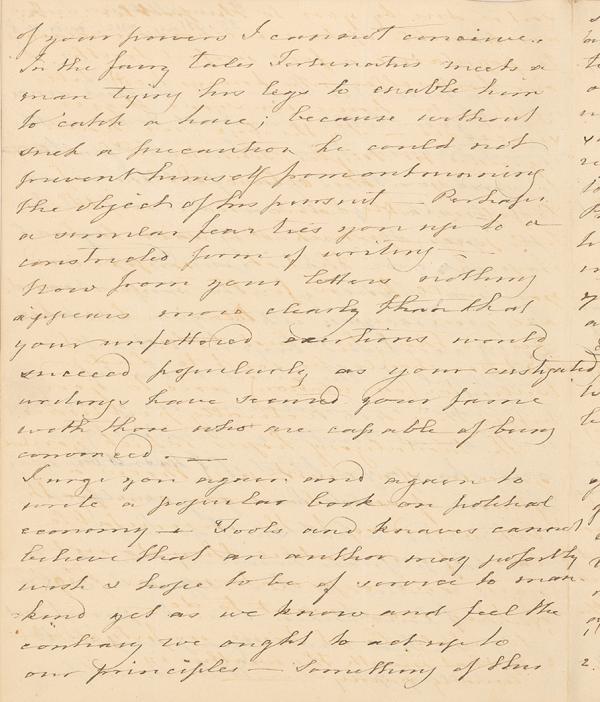 of your powers I cannot conceive.
In the fairy tales Fortunatus meets a
man tying his legs to enable him
to catch a hare; because without
such a precaution he could not
prevent himself from outrunning
the object of his pursuit — Perhaps
a similar fear ties you up to a
constricted form of writing —
Now from your letters nothing
appears more clearly than that
your unfettered exertions would
succeed popularly as your castigated
writings have secured your fame
with those who are capable of being
convinced. —
I urge you again and again to
write a popular book on political
economy — Fools and knaves cannot
believe that an author may possibly
wish & hope to be of service to man-
kind yet as we know and feel the
contrary we ought to act up to
our principles — Something of this